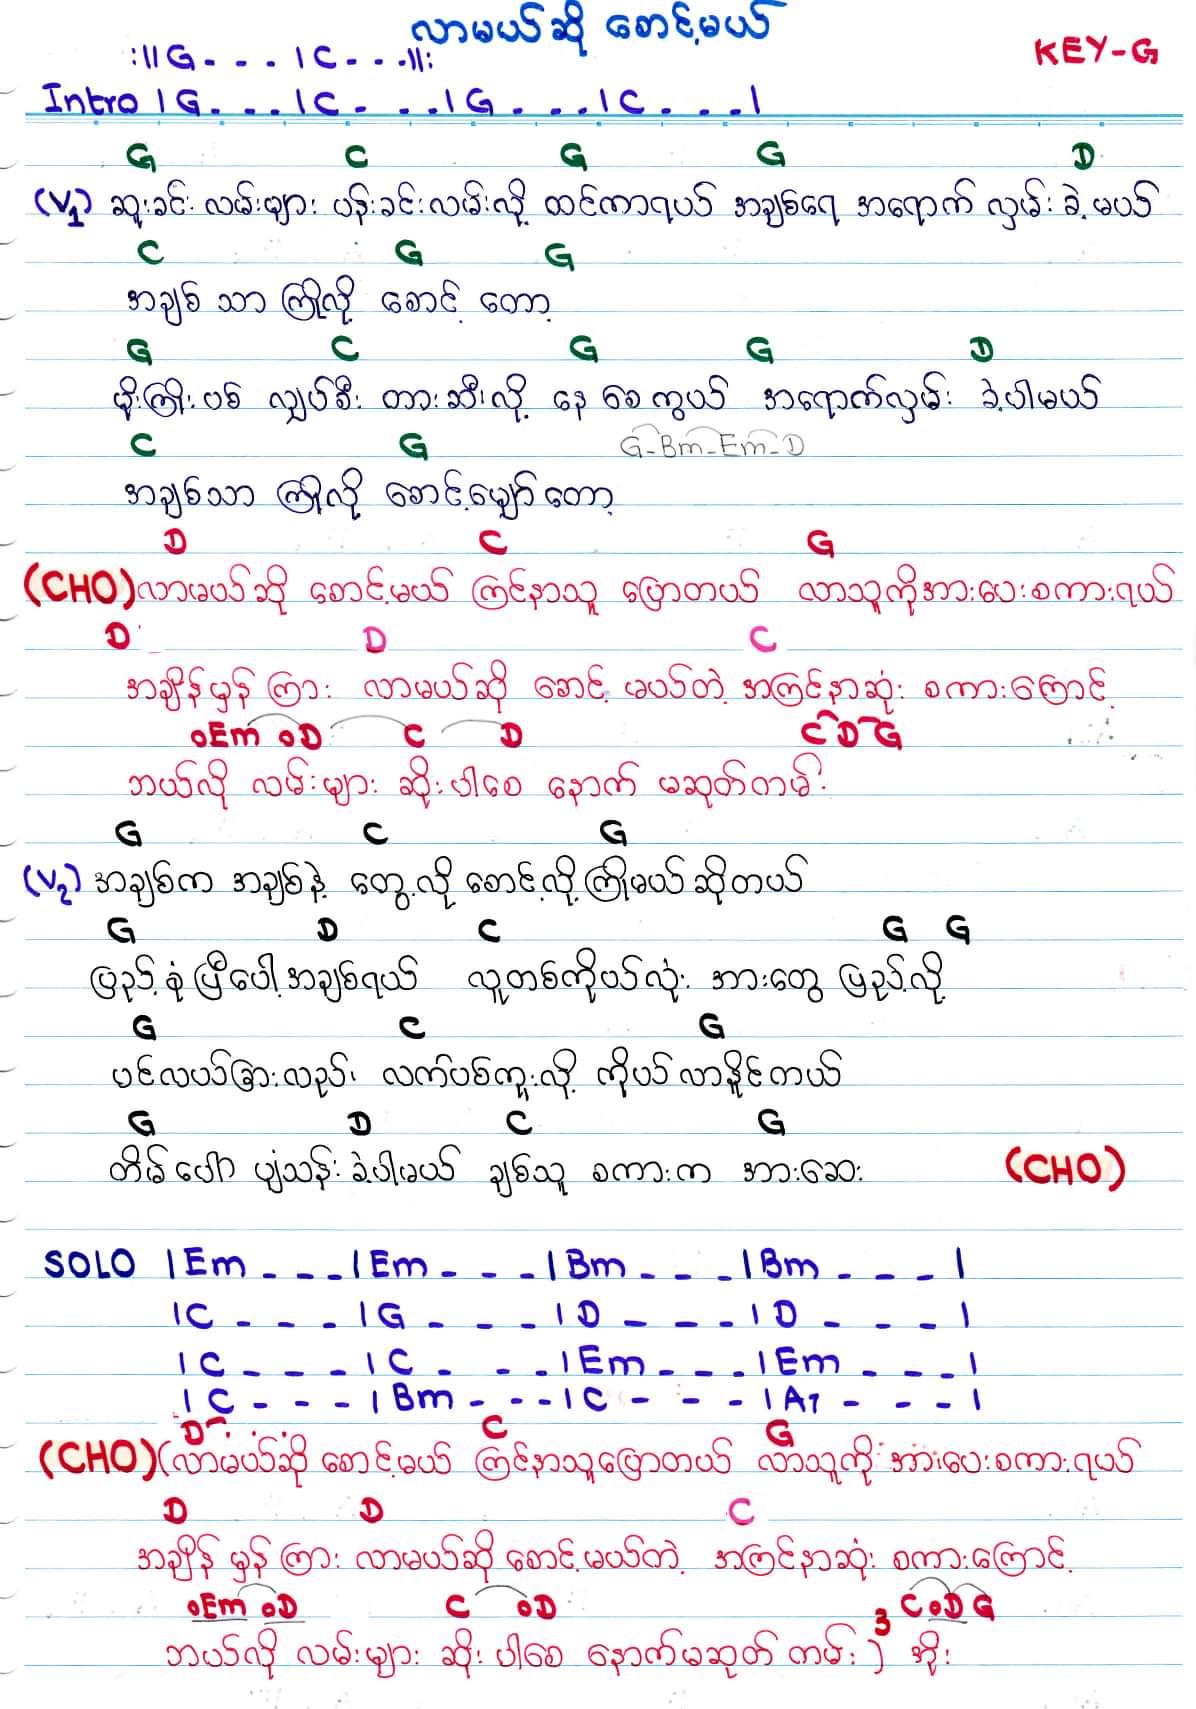 လာမယ်ဆို စောင့်မယ်
:||G - - - | C - - - ||:
KEY-G
Intro | G - - - | C - - - | G - - - | C - - - |
G C G G D
(V1) ဆူးခင်းလမ်းများ ပန်းခင်းလမ်းလို့ ထင်ကာရယ် အချစ်ရေ အရောက် လှမ်းခဲ့မယ်
C G G
အချစ် သာ ကြိုလို့ စောင့် တော့
G C G G D
မိုးကြိုးပစ် လျှပ်စီး တားဆီးလို့ နေ စေကွယ် အရောက်လှမ်း ခဲ့ပါမယ်
C G G-Bm-Em-D
အချစ်သာ ကြိုလို့ စောင့်မျှော်တော့
D C G
(CHO) လာမယ်ဆို စောင့်မယ် ကြင်နာသူ ပြောတယ် လာသူကိုအားပေးစကားရယ်
D D C
အချိန်မှန် ကြား လာမယ်ဆို စောင့် မယ်တဲ့ အကြင်နာဆုံး စကားကြောင့်
oEm oD C D C D G
ဘယ်လို လမ်းများ ဆိုးပါစေ နောက် မဆုတ်တမ်း
G C G
(V2) အချစ်က အချစ်နဲ့ တွေ့လို့ စောင့်လို့ကြိုမယ် ဆိုတယ်
G D C G G
ပြည့်စုံ ပြီပေါ့ အချစ်ရယ် လူတစ်ကိုယ်လုံး အားတွေ ပြည့်လို့
G C G
ပင်လယ်ခြားလည်း လက်ပစ်ကူးလို့ ကိုယ်လာနိုင်တယ်
G D C G
တိမ်ပေါ် ပျံသန်း ခဲ့ပါမယ် ချစ်သူ စကားက အားဆေး (CHO)
SOLO | Em - - - | Em - - - | Bm - - - | Bm - - - |
| C - - - | G - - - | D - - - | D - - - |
| C - - - | C - - - | Em - - - | Em - - - |
| C - - - | Bm - - - | C - - - | A7 - - - |
D C G
(CHO) (လာမယ်ဆို စောင့်မယ် ကြင်နာသူပြောတယ် လာသူကို အားပေးစကားရယ်
D D C
အချိန် မှန် ကြား လာမယ်ဆို စောင့်မယ်တဲ့ အကြင်နာဆုံး စကားကြောင့်
oEm oD C oD C oD G
ဘယ်လို လမ်းများ ဆိုး ပါစေ နောက်မဆုတ် တမ်း )3 အိုး